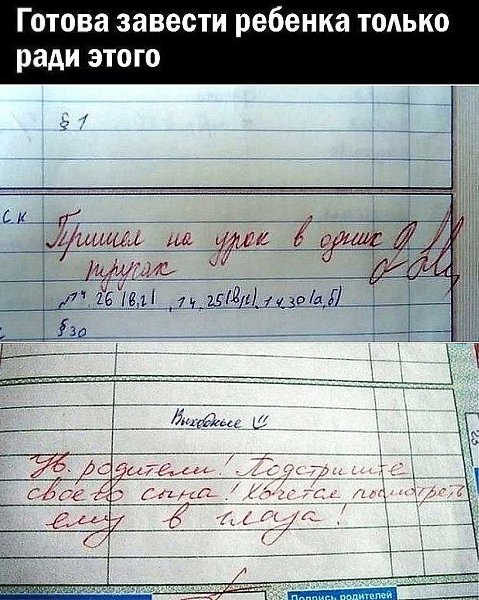 Готова завести ребенка только
ради этого
§ 1
ск
Пришел на урок в одних
трусах
26 (в,г) 14.25(в,г), 14.30(а,б)
§ 30
Выходные
Ув. родители! Подстригите
своего сына! Хочется посмотреть
ему в глаза!
Подпись родителей